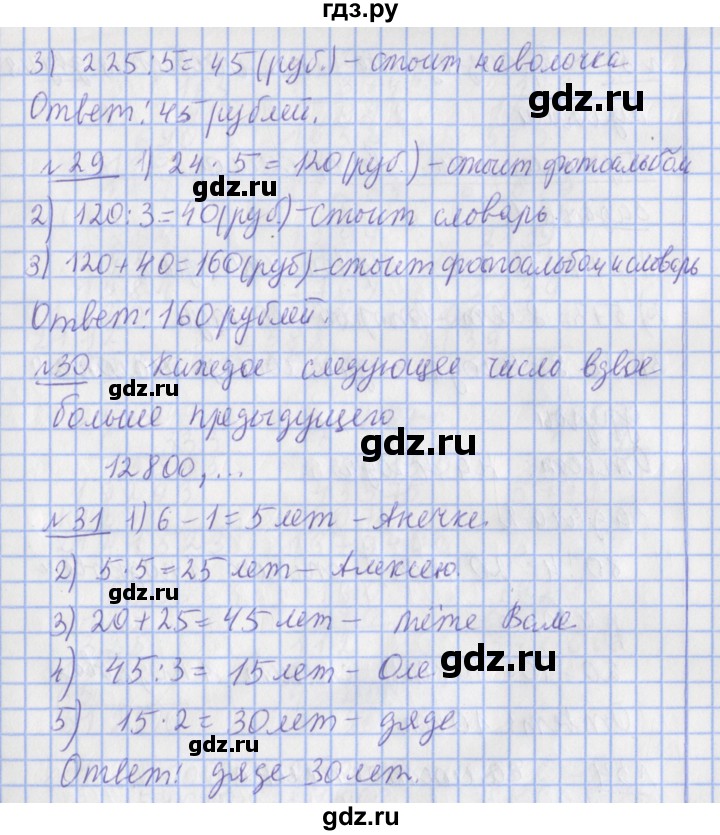 гдз.ру
3) 225:5=45(руб.)-стоит наволочка
gdz.ru
Ответ: 45 рублей.
№29 1) 24·5=120(руб.)-стоит фотоальбом
gdz.ru
2) 120:3=40(руб)-стоит словарь.
3) 120+40=160(руб)-стоит фотоальбом и словарь
gdz.ru
Ответ: 160 рублей.
№30. Каждое следующее число вдвое
gdz.ru
больше предыдущего
gdz.ru
12800,...
№31 1) 6-1=5 лет - Анечке.
2) 5·5=25 лет- Алексею.
gdz.ru
3) 20+25=45 лет- тёте Вале
gdz.ru
4) 45:3= 15 лет- Оле
5) 15·2=30 лет- дяде
gdz.ru
Ответ: дяде 30 лет.
gdz.ru